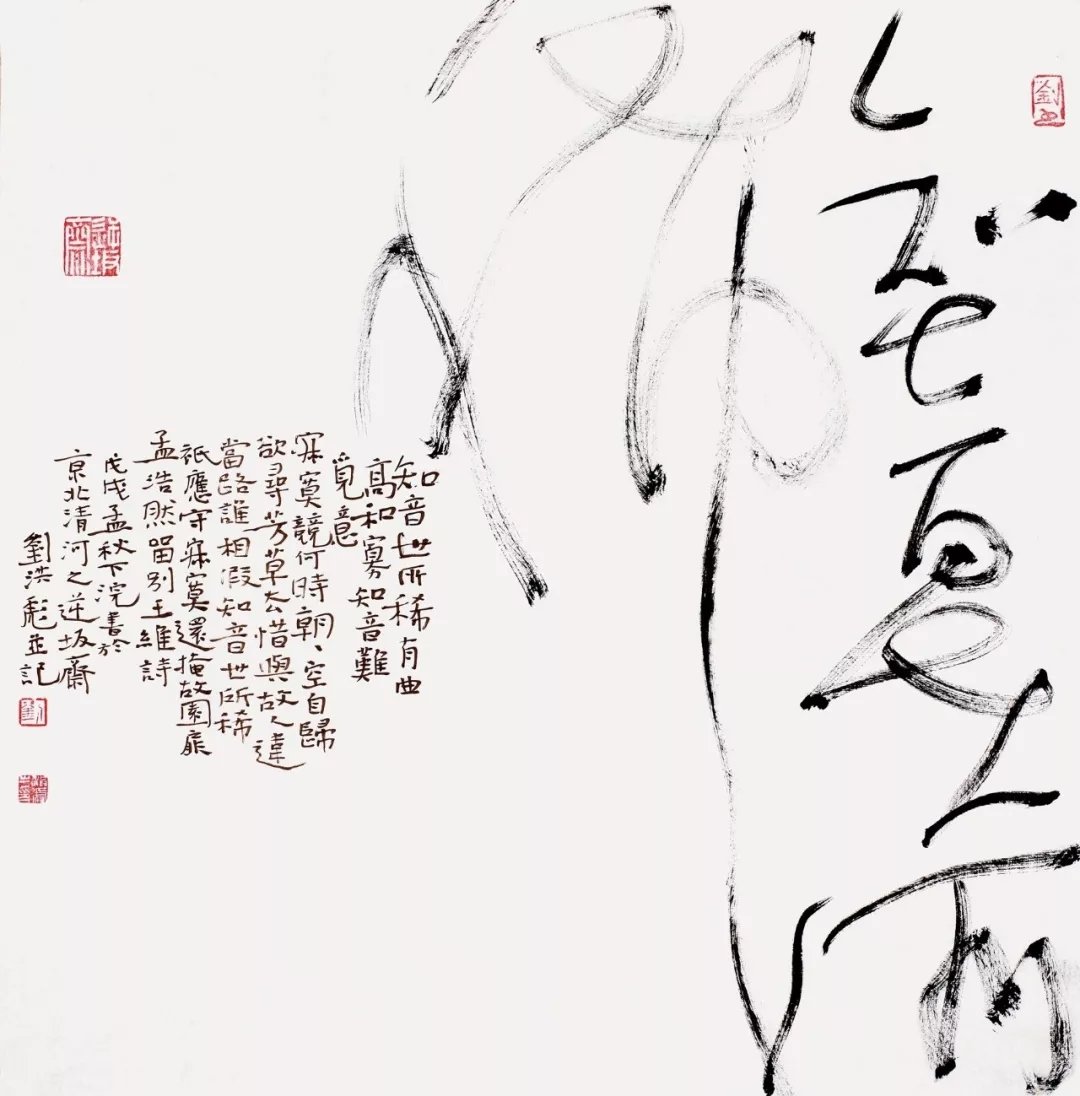 知音世所
稀
知音世所稀有曲
高和寡知音難
覓意
寂寞競何時朝、空自歸
欲尋芳草去惜與故人違
當路誰相假知音世所稀
祇應守寂寞還掩故園扉
孟浩然留別王維詩
戊戌孟秋下浣書於
京北清河之逆坂齋
劉洪彪並記
劉